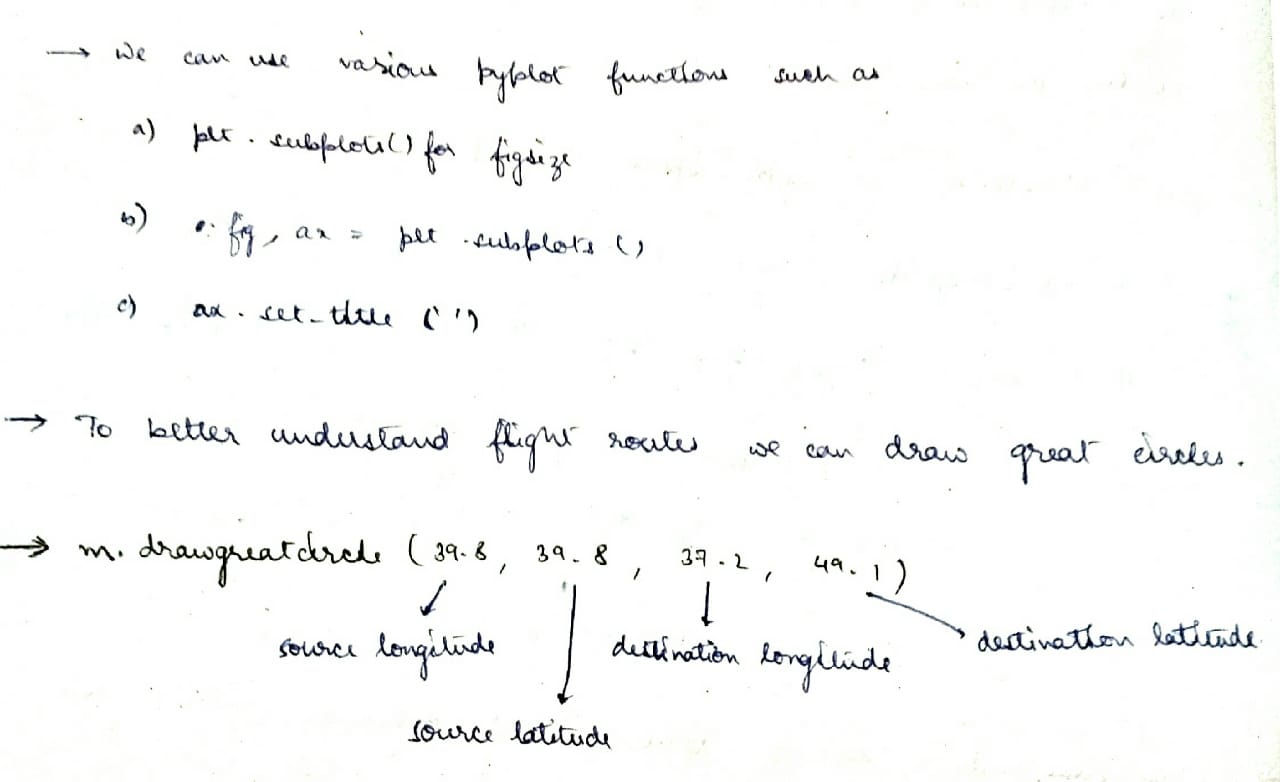 → We can use various pyplot functions such as
a) plt . subplots() for figsize
b) fig, ax = plt .subplots ()
c) ax . set_title (' ')
→ To better understand flight routes we can draw great circles.
→ m. drawgreatcircle (39.8, 39.8, 37.2, 49.1)
source longitude destination longitude destination latitude
source latitude